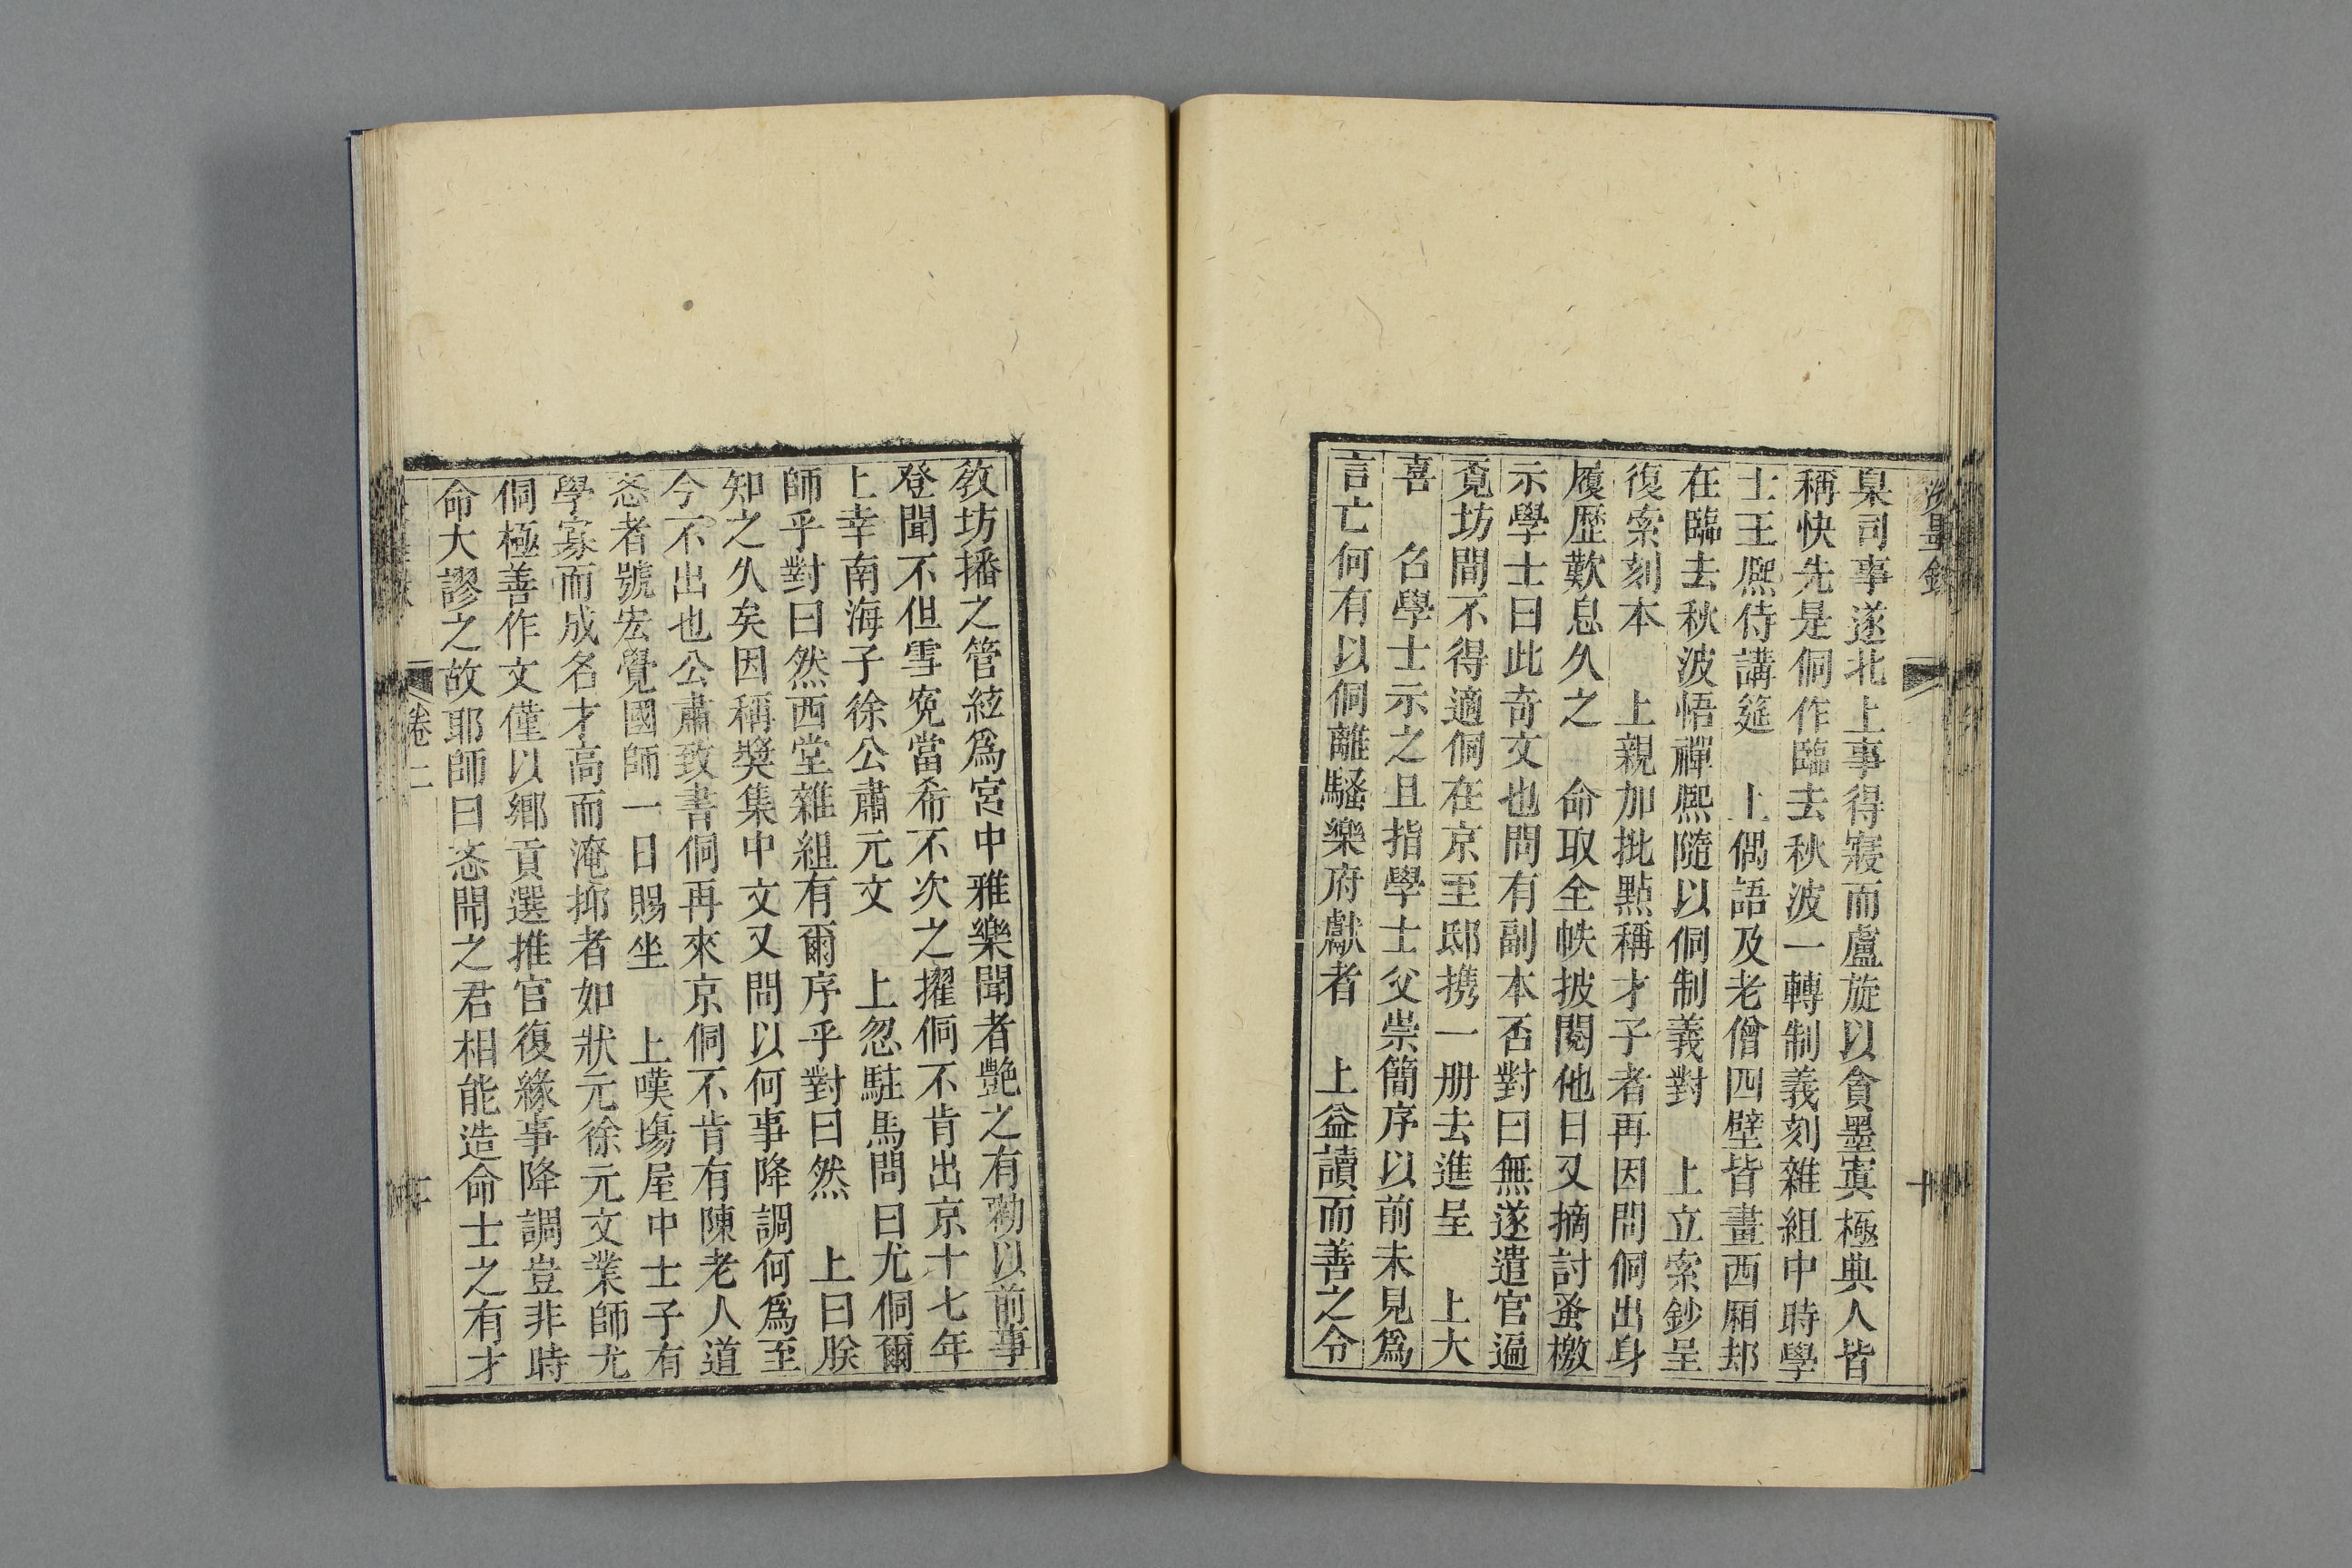 臬司事遂北上事得寢而盧旋以貪墨寘極典人皆
稱快先是侗作臨去秋波一轉制義刻雜組中時學
士王熈侍講筵　上偶語及老僧四壁皆畫西厢却
在臨去秋波悟禪熈隨以侗制義對　上立索鈔呈
復索刻本　上親加批點稱才子者再因問侗出身
履歴歎息久之　命取全帙披閱他日又摘討蚤檄
示學士曰此奇文也問有副本否對曰無遂遣官遍
覔坊間不得適侗在京至邸携一册去進呈　上大
喜　名學士示之且指學士父崇簡序以前未見爲
言亡何有以侗離騷樂府獻者　上益讀而善之令
教坊播之管絃爲宮中雅樂聞者艶之有勸以前事
登聞不但雪寃當希不次之擢侗不肯出京十七年
上幸南海子徐公肅元文　上忽駐馬問曰尤侗爾
師乎對曰然西堂雜組有爾序乎對曰然　上曰朕
知之久矣因稱奬集中文又問以何事降調何爲至
今不出也公肅致書侗再來京侗不肯有陳老人道
忞者號宏覺國師一日賜坐　上嘆塲屋中士子有
學寡而成名才高而淹抑者如狀元徐元文業師尤
侗極善作文僅以鄉貢選推官復緣事降調豈非時
命大謬之故耶師曰忞聞之君相能造命士之有才
卷二